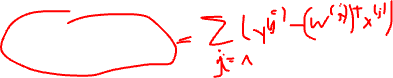 = ∑_{j=1} (y^{(j)} - (w^{(j)})^T x^{(j)}